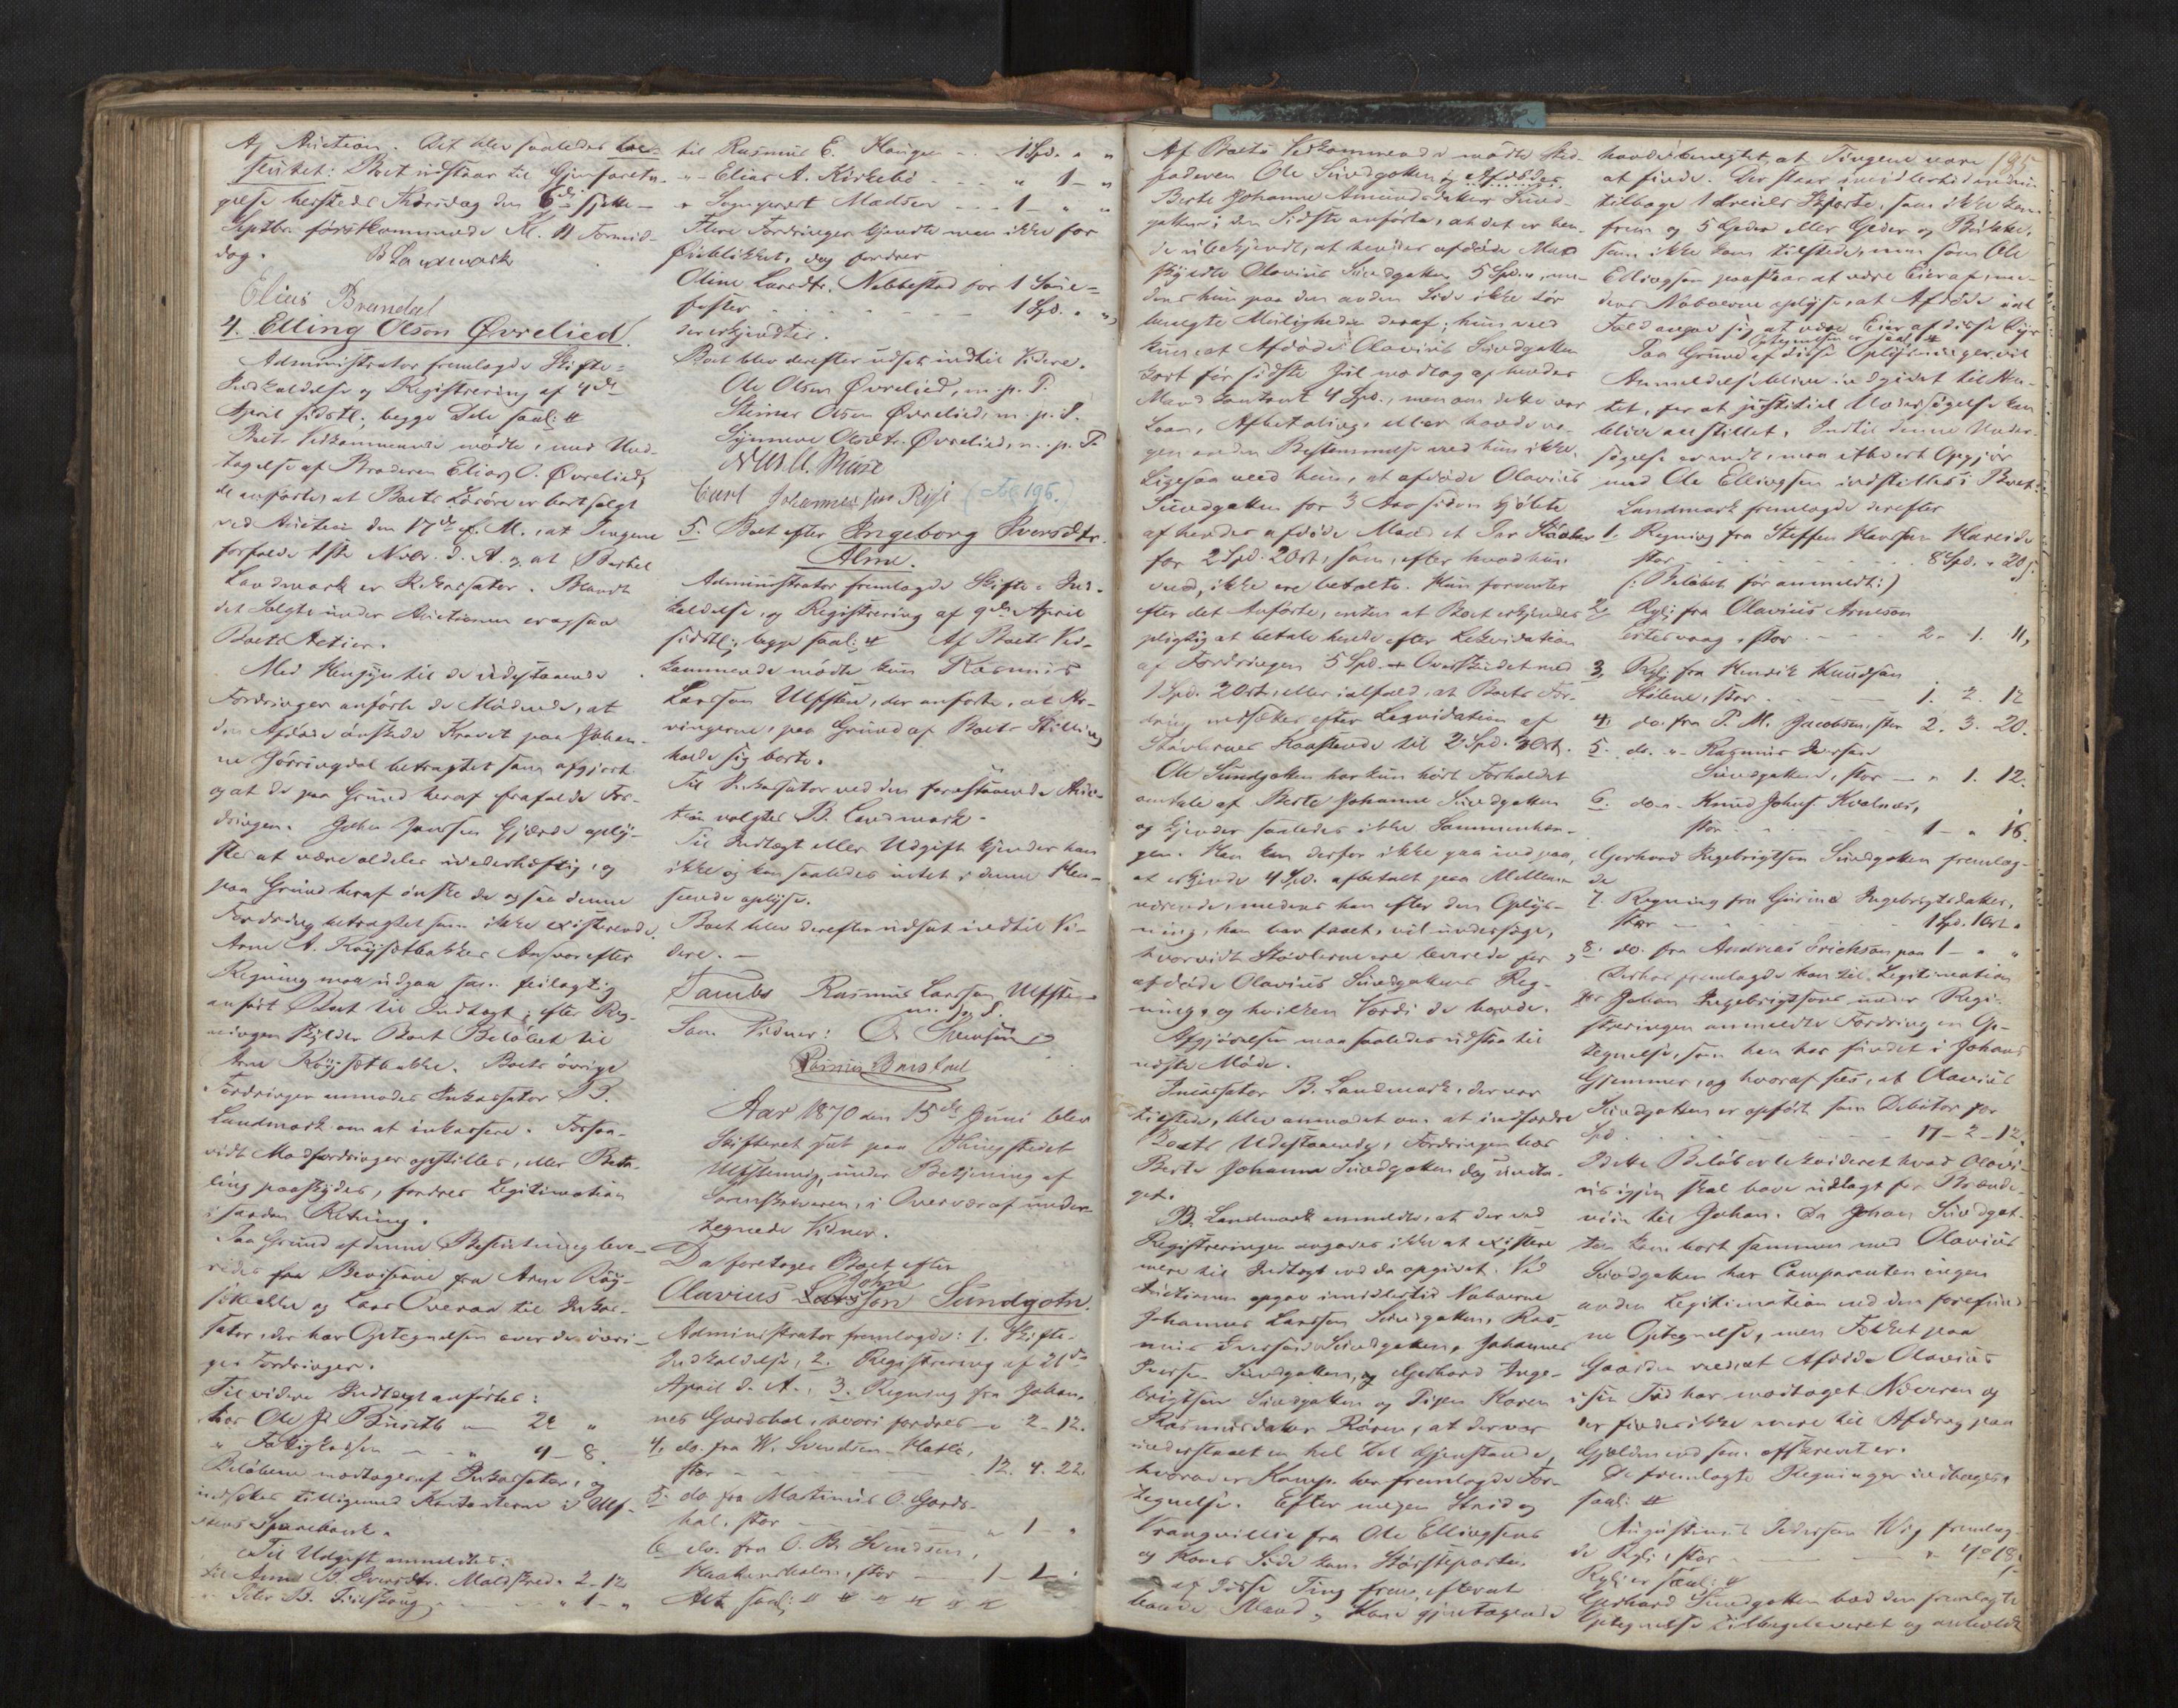 Af Auction. Det blev saaledes be-
sluttet: Boet udstaar til Gjenforetа-
gelse hersteds Thorsdag den 6te sjette
Septbr. førstkommende Kl. 11 Formid-
dag. B Landmark
Elias Brandal
4. Elling Olson Øvrelied.
Administrator fremlagde Skifte-
Indkaldelse og Registrering af 4de
April sidstl. begge Dele saal:
Boets Vedkommende mødte, med Und-
tagelse af Broderen Elias O. Øvrelied,
de anførte, at Boets Løsøre er bortsolgt
ved Auction den 17de f. M., at Pengene
forfalde 1ste Novbr. d. A. og at Bertel
Landmark er Inkassator. Blandt
det Solgte under Auctionen er ogsaa
Boets Actier.
Med Hensyn til de udestaaende
Fordringer anførte de Mødende, at
den Afdøde ønskede Kravet paa Johan-
ne Hjørringdal betragtet som afgjort
og at de paa Grund heraf frafalde For-
dringen. John Jonssen Gjærde oply-
stes at være aldeles uvederhæftig, og
paa Grund heraf ønske de ogsaa denne
Fordring betragtet som ikke existerende.
Arne A. Røysetbakkes Ansvar efter
Regning maa udgaa som feilagtig
anført Boet til Indtægt; efter Reg-
ningen skylder Boet Beløbet til
Arne Røysetbakke. Boets øvrige
Fordringer anmodes Inkassator B.
Landmark om at inkassere. Forsaa-
vidt Modfordringer opstilles, eller Beta-
ling paaskydes, fordres Legitimation
i saadan Retning.
Paa Grund af denne Beslutning leve-
redes Beviserne fra Arne Røy-
setbakke og Lars Overaa til Inkas-
sator, der har Optegnelsen over de øvri-
ge Fordringer.
Til videre Indtægt anførtes:
hos Ole J. Buseth — 22 "
" Fattigkassen — " 4-8.
Beløbene modtages af Inkassator, og
indsættes tilligemed Kontanterne i Ulf-
stens Sparebank.
Til Udgift anmeldtes:
til Anne B. Iversdtr. Maldstad 2-12
" Peter B. Fiilskoug " 1- "
til Rasmus E. Hauge 1 Spd. " "
" Elias A. Kirkebø " 1- "
" Sogneprest Madsen 1- " "
Flere Fordringer kjendte man ikke for
Øieblikket, dog fordrer
Oline Larsdtr. Nebbestad for 1 Søie-
foster 1 Spd. " "
der erkjendtes.
Boet blev derefter udsat indtil Videre.
Ole Olsen Øvrelied, m. p. P.
Steiner Olsen Øvrelied, m. p. P.
Synneve Olsdtr. Øvrelied, m. p. P.
Carl Johannessen Rise (No 196.)
5. Boet efter Ingeborg Iversdtr.
Alme.
Administrator fremlagde Skifte-Ind-
kaldelse og Registrering af 9de April
sidstl., begge saal: Af Boets Ved-
kommende mødte kun Rasmus
Larssen Ulfsten, der anførte, at Ar-
vingerne, paa Grund af Boets Stilling
holde sig borte.
Til Inkassator ved den forestaaende Auc-
tion valgtes B. Landmark.
Til Indtægt eller Udgift kjender han
ikke og kan saaledes intet i denne Hen-
seende oplyse.
Boet blev derefter udsat indtil Vi-
dere.
Jambs Rasmus Larssen Ulfsten
m. p. P.
Som Vidner:
Aar 1870 den 15de Juni blev
Skifteret sat paa Thingstedet
Ulfstenvig, under Betjening af
Sorenskriveren, i Overvær af under-
tegnede Vidner.
Da foretoges Boet efter
John
Olavius Larsson Sundgotn.
Administrator fremlagde: 1. Skifte-
Indkaldelse, 2. Registrering af 21de
April d. A., 3. Regning fra Johan-
nes Gardshol, hvori fordres " 2-12.
4. do. fra W. Svendsen Hatlø,
stor 12. 4. 22.
5. do fra Martinus O. Gards-
hol, stor " 1- "
6 do. fra O. B. Svendsen,
stor 1-1
Alt saal:
Af Boets Vedkommende mødte Sted-
faderen Ole Sundgotten og Afdødes
Berte Johanne Amundsdatter Sund-
gotten; den Sidste anførte, at det er hen-
de ubekjendt, at hendes afdøde Mand
skyldte Olavius Sundgotten 5 Spd., me-
dens hun paa den anden Side ikke tør
benegte Muligheden deraf; hun veed
kun, at Afdøde Olavius Sundgotten
kort før sidste Jul modtog af hendes
Mand kontant 4 Spd., men om dette var
Laan, Afbetaling, eller havde no-
gen anden Bestemmelse veed hun ikke.
Ligesaa veed hun, at afdøde Olavius
Sundgotten for 3 Aar siden kjøbte
af hendes afdøde Mand et Par Støvler
for 2 Spd. 2 Ort, som, efter hvad hun
veed, ikke ere betalte. Hun forventer
efter det Anførte, enten at Boet erkjendes
pligtig at betale hende efter Likvidation
af Fordringen 5 Spd. Overskudet med
1 Spd. 2 Ort, eller ialfald, at Boets For-
dring nedsættes efter Liqvidation af
Støvlernes Kostende til 2 Spd. 3 Ort.
Ole Sundgotten har kun hørt Forholdet
omtale af Berte Johanne Sundgotten
og kjender saaledes ikke Sammenhæn-
gen. Han kan derfor ikke gaa ind paa,
at erkjende 4 Spd. afbetalt paa Mellem-
værende, medens han efter den Oplys-
ning, han har faaet, vil undersøge,
hvorvidt Støvlerne ere leverede før
afdøde Olavius Sundgottens Reg-
ning, og hvilken Værdi de havde.
Afgjørelsen maa saaledes udstaa til
næste Møde.
Inkassator B. Landmark, der var
tilstede, blev anmodet om at indfordre
Boets Udestaaende, Fordringen hos
Berte Johanne Sundgotten dog undta-
get.
B. Landmark anmeldte, at der ved
Registreringen angaves ikke at existere
mere til Indtægt end da opgivet. Ved
Auctionen opgav imidlertid Naboerne
Johannes Larssen Sundgotten, Ras-
mus Iversen Sundgotten, Johannes
Iversen Sundgotten, og Gerhard Inge-
brigtsen Sundgotten og Pigen Karen
Rasmusdatter Røren, at der var
understaaet en hel Del Gjenstande,
hvorover Komp. har fremlagde For-
tegnelse. Efter megen Strid og
Vrangvillie fra Ole Ellingsens
og Kones Side kom Størsteparten
af disse Ting frem, efterat
baade Mand og Kone gjentagende
havde benegtet, at Tingene vare 195
at finde. Der staar imidlertid endnu
tilbage 1 dreiels Skjorte, som ikke kom
frem og 5 Gjeder eller Geder og Bukke,
som ikke kom tilstede, men som Ole
Ellingsen paastaar at være Eier af, me-
dens Naboerne oplyse, at Afdøde i al
Fald angav sig at være Eier af disse Dyr
Optegnelsen er saal:
Paa Grund af disse Oplysninger vil
Anmeldelse blive indgivet til Am-
tet, for at justitiel Undersøgelse kan
blive anstillet. Indtil denne Under-
søgelse er endt, maa ethvert Opgjør
med Ole Ellingsen indstilles i Boet.
Landmark fremlagde derefter
1. Regning fra Steffen Hansen Hareide
stor 8 Spd. " 20 s.
(: Beløbet før anmeldt :)
2. Regn: fra Olavius Arneson
Eertesvaag, stor 2. 1. 11,
3, Regn: fra Hendrik Knudsen
Stølene, stor 1. 2. 12
4. do. fra P. M. Jacobsen, stor 2. 3. 20.
5. do. " Rasmus Iversen
Sundgotten, stor " 1. 12.
6. do. " Knud Johns. Kvalnes,
stor 1- " 16.
Gerhard Ingebrigtsen Sundgotten fremlag-
de
7. Regning fra Gurine Ingebrigtsdatter,
stor 1 Spd. 1 Ort.
8. do. fra Andreas Erichsen paa 1- " "
Derhos fremlagde han til Legitimation
for Johan Ingebrigtsens under Regi-
streringen anmeldte Fordring en Op-
tegnelse, som han har fundet i Johans
Gjemmer, og hvoraf sees, at Olavius
Sundgotten er opført som Debitor for
Spd. 17-2-12.
I dette Beløb er likvideret hvad Olavi-
us igjen skal have udlagt for Brænde-
viin til Johan. Da Johan Sundgot-
ten kom bort sammen med Olavius
Sundgotten har Comparenten ingen
anden Legitimation end den forefund-
ne Optegnelse, men Folket paa
Gaarden veed, at Afdøde Olavius
i sin Tid har modtaget Næveren og
der findes ikke mere til Afdrag paa
Gjælden end som afskrevet er.
De fremlagte Regninger indtages,
saal:
Augustinus Pedersen Wig fremlag-
de Regn:, stor " 4-18.
Regn: er saal:
Gerhard Sundgotten bad den fremlagte
Optegnelse tilbageleveret og anholdt